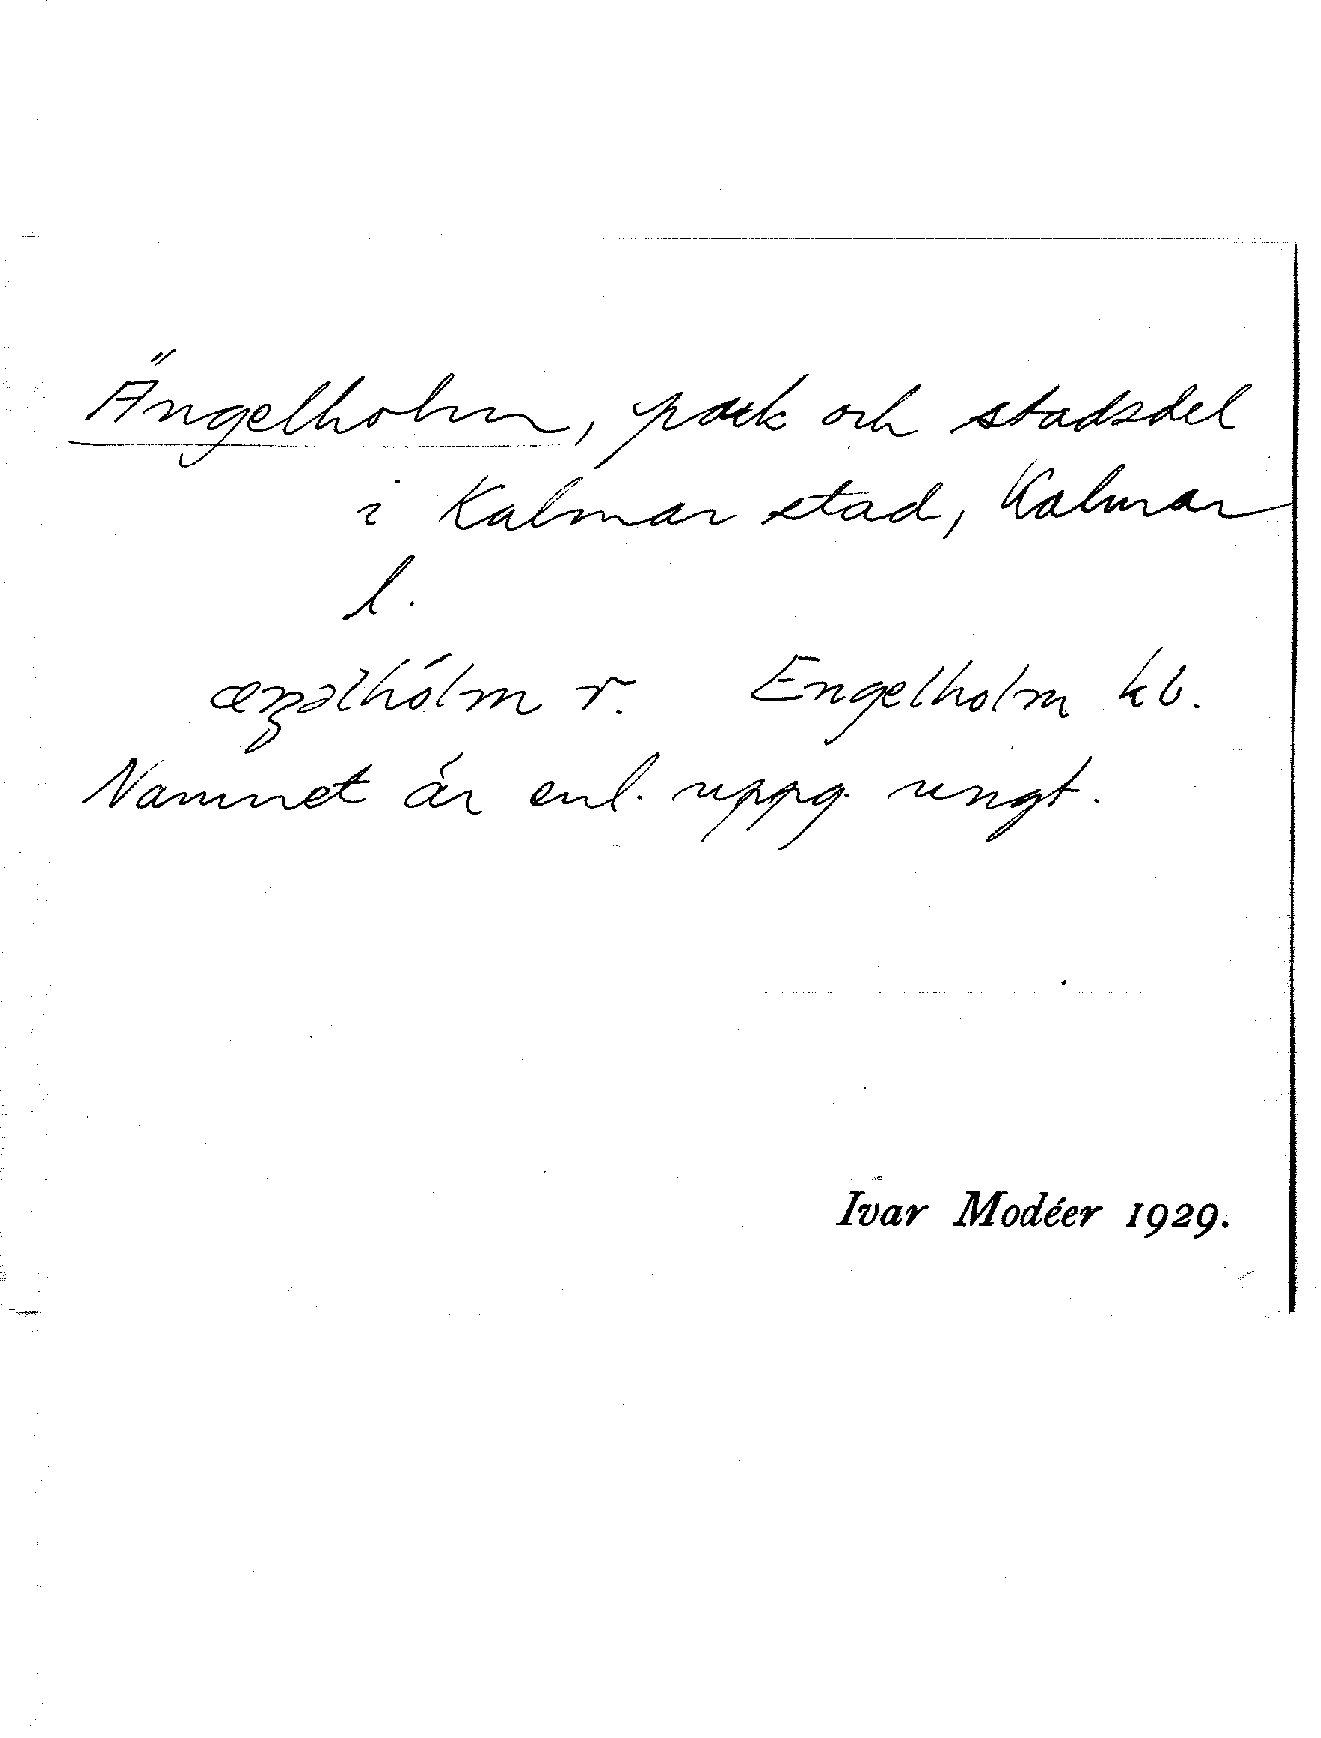 Ängelholm, park och stadsdel
i Kalmar stad, Kalmar
l.
æŋəlhólm r. Engelholm kb.
Namnet är enl. uppg. ungt.
Ivar Modéer 1929.